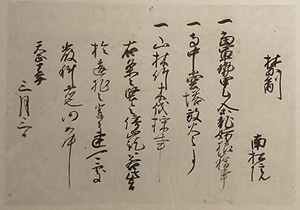 禁制
南松院
一 軍勢甲乙人乱妨狼藉事
一 寺中堂塔放火之事
一 山林竹木伐採事
右条々堅令停止訖
於違犯之輩者速可処
厳科者也仍如件
天正十年
三月三日